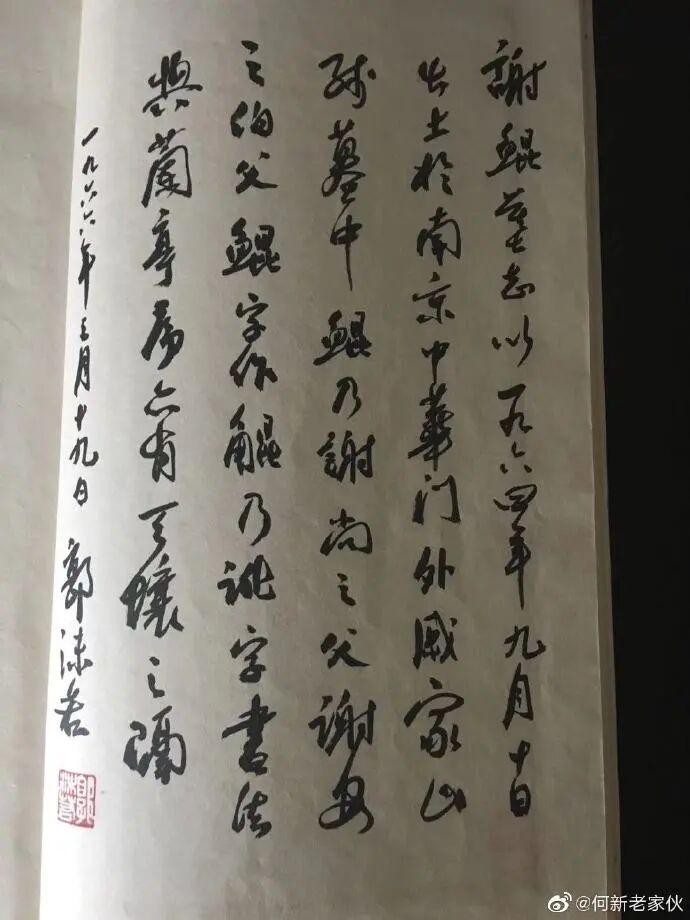 謝鯤墓志以一九六四年九月十日
出土於南京中華門外戚家山
殘墓中鯤乃謝尚之父謝安
之伯父鯤字作䚠乃訛字書法
與蘭亭序亦有天壤之隔
一九六六年三月十九日 郭沫若
郭沫若
@何新老家伙